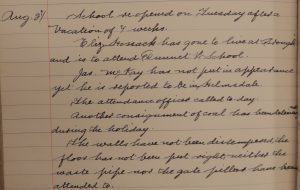 Aug. 27 School re-opened on Tuesday after a
vacation of 7 weeks.
Eliz Gossack has gone to live at
and is to attend School.
Jas. McKay has not put in appearance
yet he is reported to be in Helmsdale
The attendance officer called to-day.
Another consignment of coal has been
during the holiday
The walls have not been distempered, the
floor has not been put right, neither the
waste pipe nor the gate pillars have been
attended to.